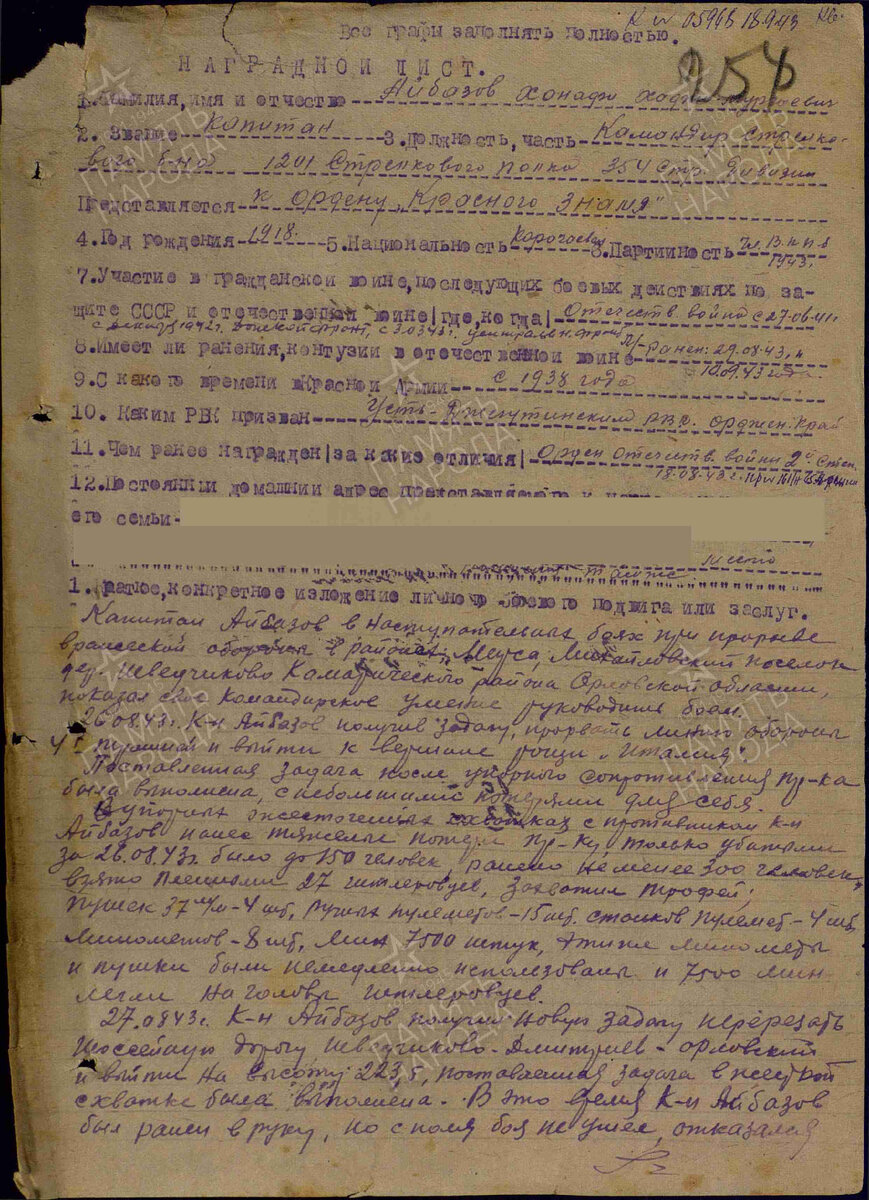 К № 05968 18.9.43
Все графы заполнять полностью.
НАГРАДНОЙ ЛИСТ.
1. Фамилия, имя и отчество Айбазов Хонафи
2. Звание Капитан 3. Должность, часть Командир стрелко-
вого б-на 1201 Стрелкового полка 354 Стр. Дивизии
Представляется к ордену „Красного Знамя"
4. Год рождения 1918. 5. Национальность 6. Партийность Чл. ВКПб
1943г.
7. Участие в гражданской войне, последующих боевых действиях по за-
щите СССР и отечественной войне |где, когда| Отечеств. война с 27.06.41г.
8. Имеет ли ранения, контузии в отечественной войне ранен: 29.08.43, и
10.09.43 года.
9. С какого времени в Красной Армии с 1938 года
10. Каким РВК призван Усть-Джегутинским РВК. Орджон. Край
11. Чем ранее награжден |за какие отличия| Орден Отечеств. войны 2й степ.
18.08.43г.
12. Постоянный домашний адрес представляемого к
его семьи
место
1. Краткое, конкретное изложение личного боевого подвига или заслуг.
Капитан Айбазов в наступательных боях при прорыве
вражеской обороны в районе Михайловский поселок
дер. Невдчиково Комаричского района Орловской области,
показал свое командирское умение руководить боем.
26.08.43г. К-н Айбазов получив задачу, прорвать линию обороны
4 г. траншей и выйти к вершине рощи „Италия"
Поставленная задача после упорного сопротивления пр-ка
была выполнена, с небольшими потерями для себя.
В упорных ожесточенных схватках с противником к-н
Айбазов нанес тяжелые потери пр-ку только убитыми
за 26.08.43г. было до 150 человек, ранено не менее 300 человек,
взято пленными 27 гитлеровцев, захватил трофей:
Пушек 37 м/м - 4 шт, ручных пулеметов - 15 шт. станков пулемет - 4 шт,
Минометов - 8 шт, Мин 7500 штук, этими минометы
и пушки были немедленно использованы и 7500 мин
легли на головы гитлеровцев.
27.08.43г. К-н Айбазов получил новую задачу перерезать
шоссейную дорогу Невдчиково - Дмитриев - Орловский
и выйти на высоту 223,5, поставленная задача в жесткой
схватке была выполнена. В это время К-н Айбазов
был ранен в руку, но с поля боя не ушел, отказался